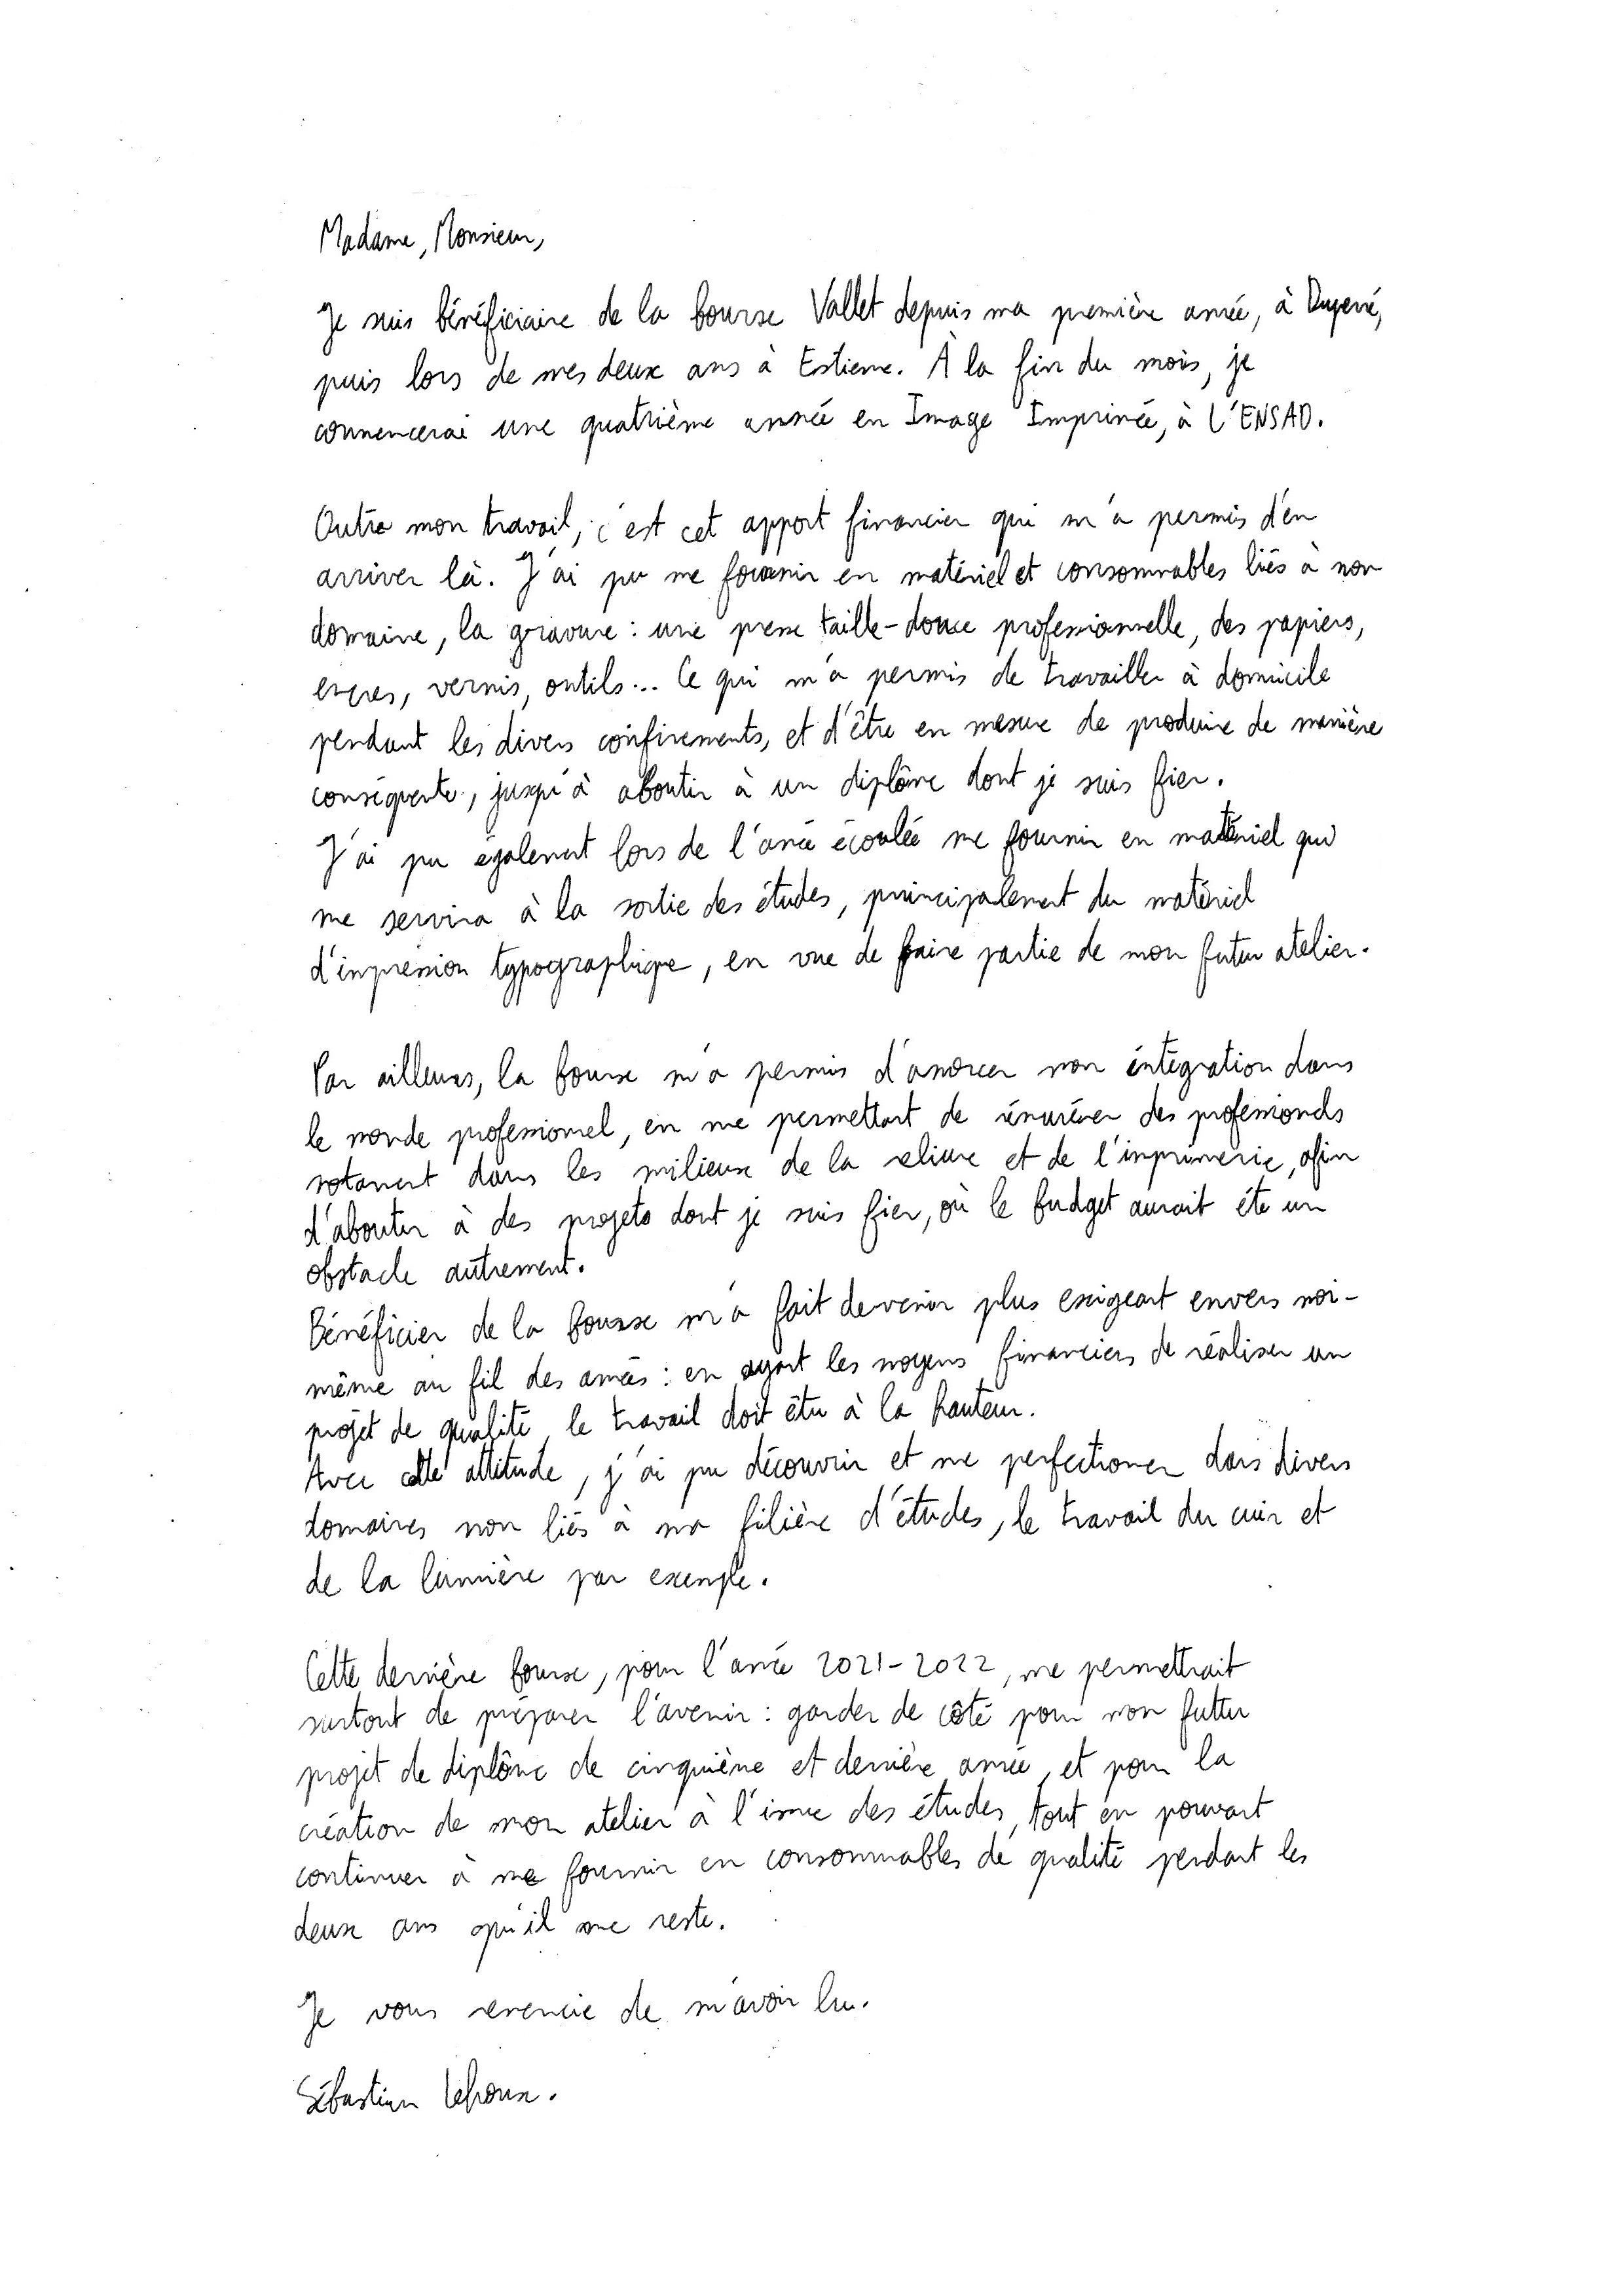 Madame, Monsieur,
Je suis bénéficiaire de la bourse Vallet depuis ma première année, à Duperré,
puis lors de mes deux ans à Estienne. À la fin du mois, je
commencerai une quatrième année en Image Imprimée, à l'ENSAD.
Outre mon travail, c'est cet apport financier qui m'a permis d'en
arriver là. J'ai pu me fournir en matériel et consommables liés à mon
domaine, la gravure : une presse taille-douce professionnelle, des papiers,
encres, vernis, outils... Ce qui m'a permis de travailler à domicile
pendant les divers confinements, et d'être en mesure de produire de manière
conséquente, jusqu'à aboutir à un diplôme dont je suis fier.
J'ai pu également lors de l'année écoulée me fournir en matériel qui
me servira à la sortie des études, principalement du matériel
d'impression typographique, en vue de faire partie de mon futur atelier.
Par ailleurs, la bourse m'a permis d'amorcer mon intégration dans
le monde professionnel, en me permettant de rémunérer des professionnels
notamment dans les milieux de la reliure et de l'imprimerie, afin
d'aboutir à des projets dont je suis fier, où le budget aurait été un
obstacle autrement.
Bénéficier de la bourse m'a fait devenir plus exigeant envers moi-
même au fil des années : en ayant les moyens financiers de réaliser un
projet de qualité, le travail doit être à la hauteur.
Avec cette attitude, j'ai pu découvrir et me perfectionner dans divers
domaines non liés à ma filière d'études, le travail du cuir et
de la lumière par exemple.
Cette dernière bourse, pour l'année 2021-2022, me permettrait
surtout de préparer l'avenir : garder de côté pour mon futur
projet de diplôme de cinquième et dernière année, et pour la
création de mon atelier à l'issue des études, tout en pouvant
continuer à me fournir en consommables de qualité pendant les
deux ans qu'il me reste.
Je vous remercie de m'avoir lu.
Sébastien Lehoux.